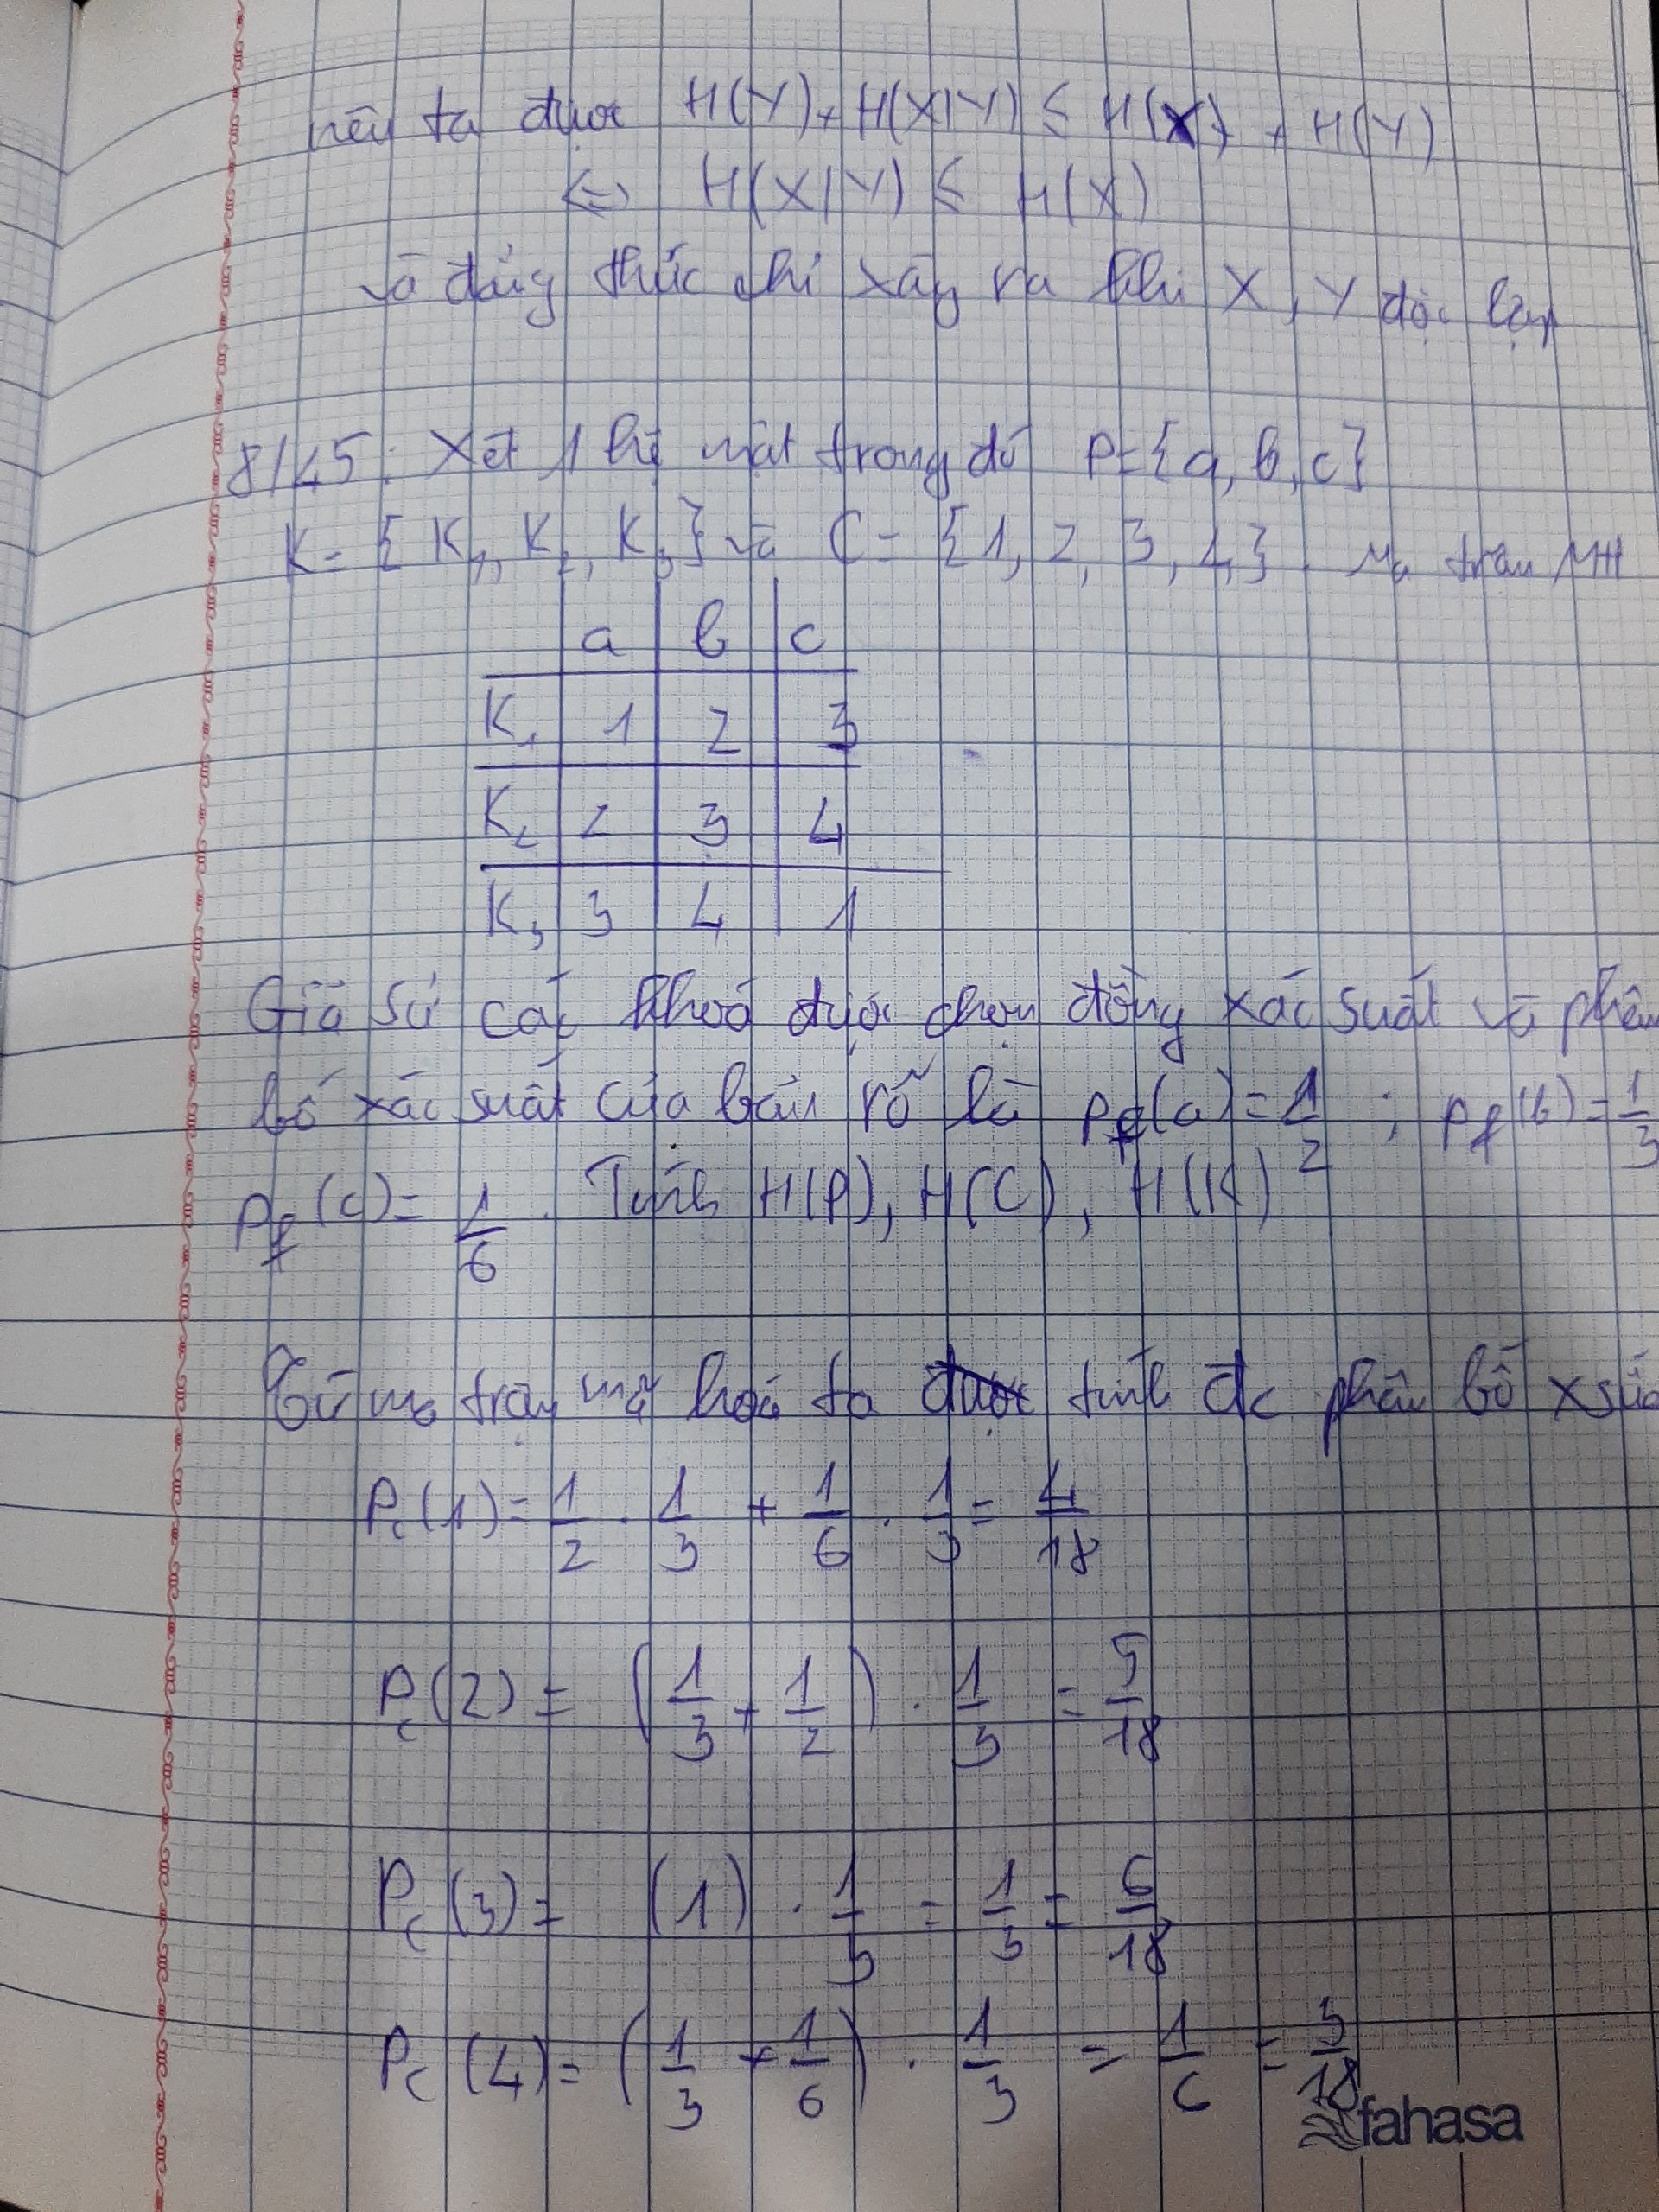 nên ta được H(Y) + H(X|Y) ≤ H(X) + H(Y)
<=> H(X|Y) ≤ H(X)
và đẳng thức chỉ xảy ra khi X, Y độc lập
8/45: Xét 1 hệ mật trong đó P = {a, b, c}
K = {K₁, K₂, K₃} và C = {1, 2, 3, 4}. Ma trận MH
a b c
K₁ 1 2 3
K₂ 2 3 4
K₃ 3 4 1
Giả sử các khoá được chọn đồng xác suất và phân
bố xác suất của bản rõ là pₚ(a) = 1/2 ; pₚ(b) = 1/3
pₚ(c) = 1/6. Tính H(P), H(C), H(K)
Từ ma trận mã hoá ta tính đc phân bố xsuấ
P_c(1) = 1/2 . 1/3 + 1/6 . 1/3 = 4/18
P_c(2) = (1/3 + 1/2) . 1/3 = 5/18
P_c(3) = (1) . 1/3 = 1/3 = 6/18
P_c(4) = (1/3 + 1/6) . 1/3 = 1/6 = 3/18
fahasa